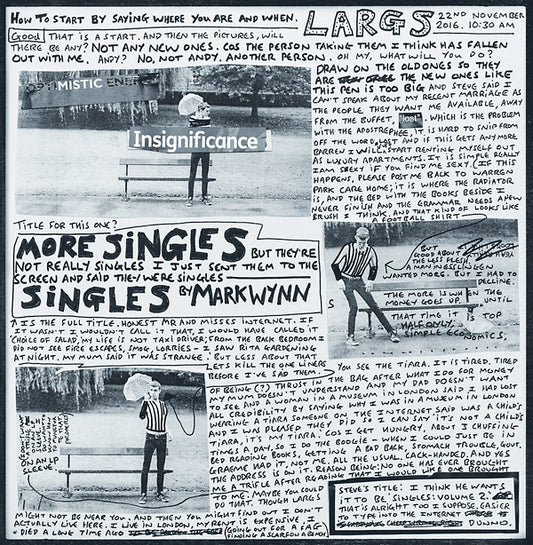 HOW TO START BY SAYING WHERE YOU ARE AND WHEN.
LARGS
22ND NOVEMBER
2016. 10:30 AM
Good THAT IS A START. AND THEN THE PICTURES, WILL
THERE BE ANY? NOT ANY NEW ONES. COS THE PERSON TAKING THEM I THINK HAS FALLEN
OUT WITH ME. ANDY? NO, NOT ANDY. ANOTHER PERSON. OH MY, WHAT WILL YOU DO?
DRAW ON THE OLD ONES SO THEY
ARE THE NEW ONES LIKE
THIS PEN IS TOO BIG AND STEVE SAID I
CAN'T SPEAK ABOUT MY RECENT MARRIAGE AS
THE PEOPLE THEY WANT ME AVAILABLE, AWAY
FROM THE BUFFET, lost', WHICH IS THE PROBLEM
WITH THE APOSTREPHEE, IT IS HARD TO SNIP FROM
OFF THE WORD LOST AND IF THIS GETS ANYMORE
BARREN I WILL START RENTING MYSELF OUT
AS LUXURY APARTMENTS. IT IS SIMPLE REALLY
I AM SEXY IF YOU FIND ME SEXY. (IF THIS
HAPPENS, PLEASE POST ME BACK TO WARREN
PARK CARE HOME; IT IS WHERE THE RADIATOR
IS, AND THE BED WITH THE BOOKS BESIDE I
NEVER FINISH AND THE GRAMMAR NEEDS A NEW
BRUSH I THINK, AND THAT KIND OF LOOKS LIKE
A FOOTBALL SHIRT
OPTIMISTIC ENERGY
Insignificance
TITLE FOR THIS ONE?
MORE SINGLES BUT THEY'RE
NOT REALLY SINGLES I JUST SENT THEM TO THE
SCREEN AND SAID THEY WERE SINGLES
SINGLES BY MARK WYNN
BUT
GOOD ABOUT
THE LESS FLESH.
A MAN IN ESSLINGEN
WANTED MORE. BUT I HAD TO
DECLINE.
THE MORE IS WHEN THE
MONEY GOES UP, UNTIL
THAT TIME IT IS TOP
HALF ONLY.
SIMPLE ECONOMICS.
^ IS THE FULL TITLE. HONEST MR AND MISSES INTERNET. IF
IT WASN'T I WOULDN'T CALL IT THAT, I WOULD HAVE CALLED IT
'CHOICE OF SALAD', MY LIFE IS NOT TAXI DRIVER; FROM THE BACK BEDROOM I
DID NOT SEE FIRE ESCAPES, SMOG, LORRIES - I SAW RITA GARDENING
AT NIGHT. MY MUM SAID IT WAS STRANGE. BUT LESS ABOUT THAT
LETS KILL THE ONE LINERS
BEFORE I'VE SAD THEM.
YOU SEE THE TIARA. IT IS TIRED, TIRED
OF BEING (?) THRUST IN THE BAG AFTER WHAT I DO FOR MONEY
MY MUM DOESN'T UNDERSTAND AND MY DAD DOESN'T WANT
TO SEE AND A WOMAN IN A MUSEUM IN LONDON SAID I HAD LOST
ALL CREDIBILITY BY SAYING WHY I WAS IN A MUSEUM IN LONDON
WEARING A TIARA SOMEONE ON THE INTERNET SAID WAS A CHILD'S
AND I WAS PLEASED THEY DID SO I CAN SAY IT'S NOT A CHILD'S
TIARA, IT'S MY TIARA. COS I GET HUNGRY, ABOUT 3 CHUFFING
TIMES A DAY, SO I DO THE BOOGIE - WHEN I COULD JUST BE IN
BED READING BOOKS, GETTING A BAD BACK, STOMACH TROUBLE, GOUT.
GRAEME HAD IT, NOT ME, ALL THE USUAL. CACK-HANDED, AND YES
THE ADDRESS IS ON IT. REASON BEING: NO ONE HAS EVER BROUGHT
ME A TRIFLE AFTER READING THAT I WOULD LIKE ONE BROUGHT
TO ME. MAYBE YOU COULD
DO THAT. THOUGH LARGS
ON AN UP
SLEEVE.
MIGHT NOT BE NEAR YOU. AND THEN YOU MIGHT FIND OUT I DON'T
ACTUALLY LIVE HERE. I LIVE IN LONDON, MY RENT IS EXPENSIVE, I
DIED A LONG TIME AGO (GOING OUT FOR A FAG
FINDING A SCARF ON A BIN).
STEVE'S TITLE: I THINK HE WANTS
IT TO BE 'SINGLES: VOLUME 2.'
THAT IS ALRIGHT TOO I SUPPOSE, EASIER
TO TYPE INTO THE INTERNET
DUNNO.